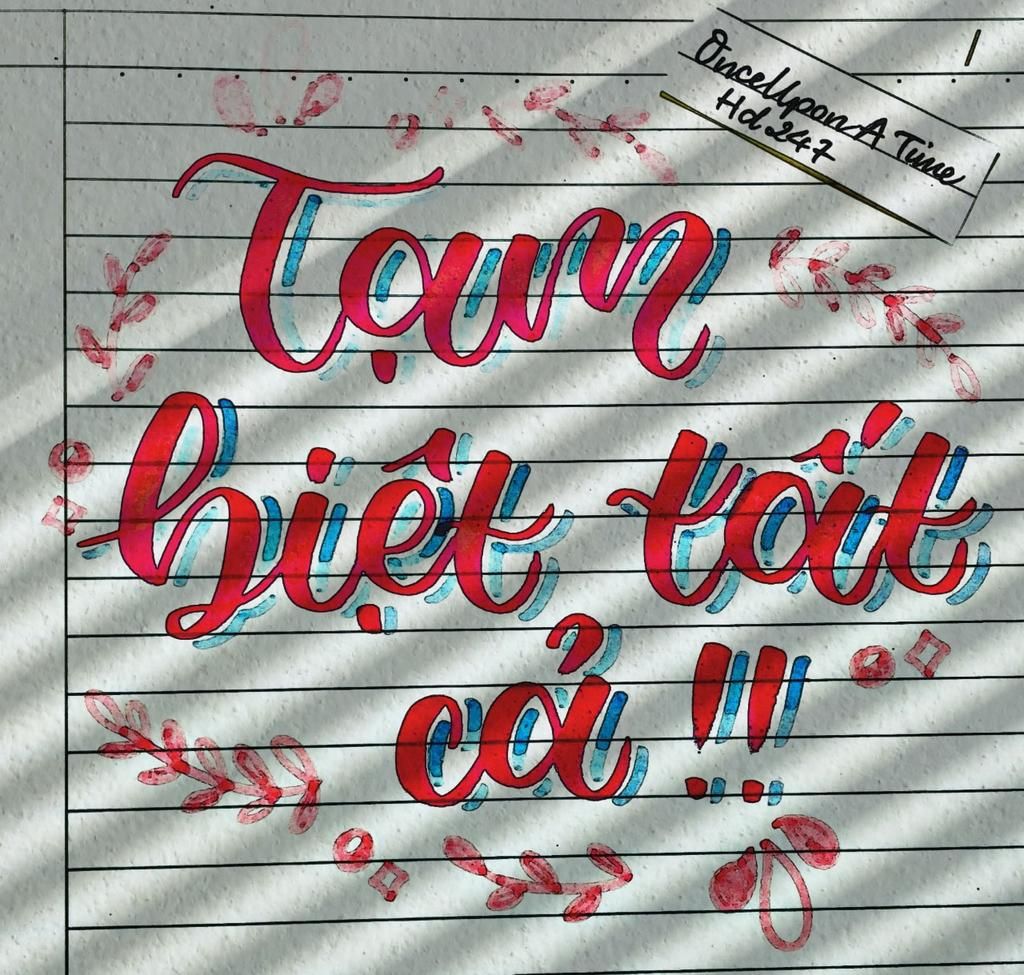 OnceUpon A Time
Hd 247
Tạm
biệt tốt
cả !!